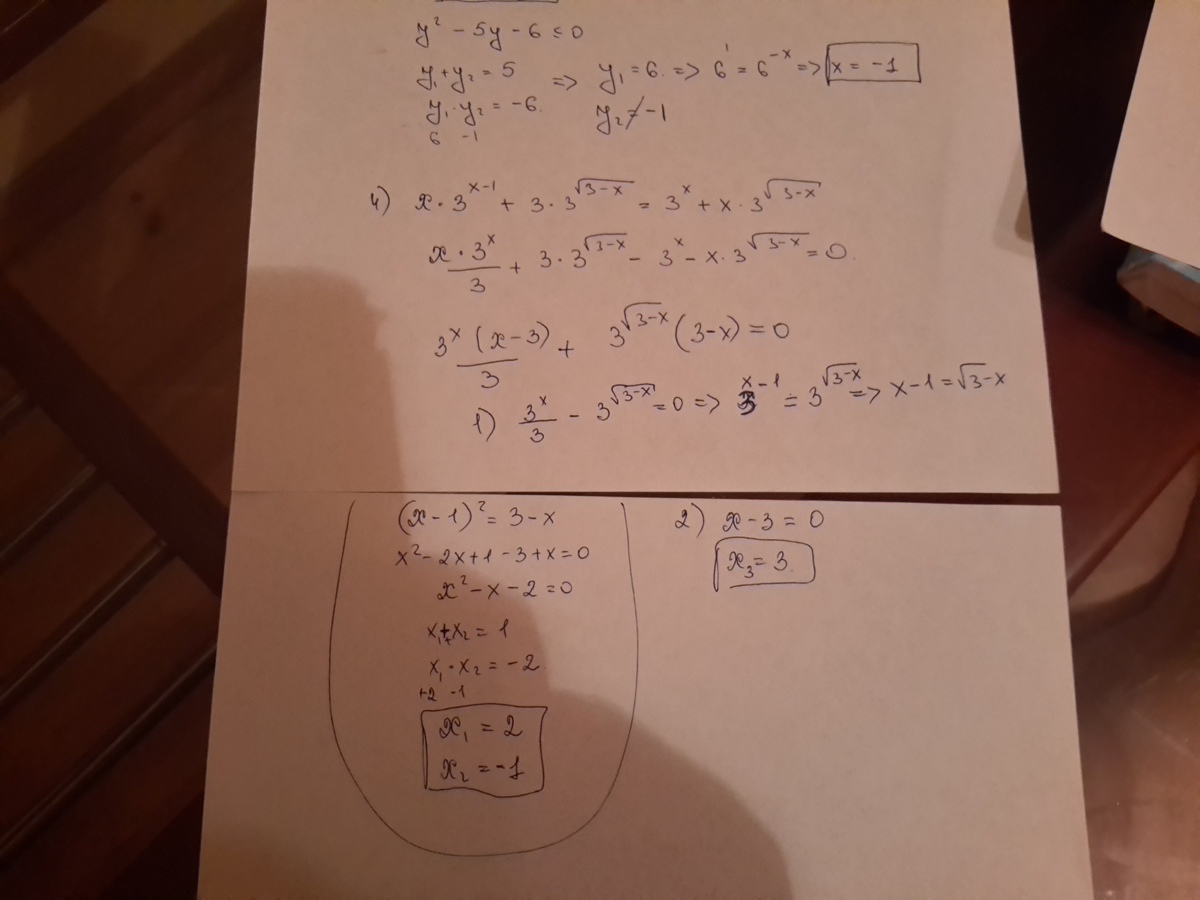 y² - 5y - 6 ≤ 0
y₁ + y₂ = 5 => y₁ = 6. => 6¹ = 6⁻ˣ => x = -1
y₁ · y₂ = -6. y₂ ≠ -1
6 -1
4) x · 3^(x-1) + 3 · 3^(√(3-x)) = 3^x + x · 3^(√(3-x))
(x · 3^x)/3 + 3 · 3^(√(3-x)) - 3^x - x · 3^(√(3-x)) = 0.
(3^x (x-3))/3 + 3^(√(3-x)) (3-x) = 0
1) (3^x)/3 - 3^(√(3-x)) = 0 => 3^(x-1) = 3^(√(3-x)) => x-1 = √(3-x)
(x-1)² = 3-x
x² - 2x + 1 - 3 + x = 0
x² - x - 2 = 0
x₁ + x₂ = 1
x₁ · x₂ = -2
+2 -1
x₁ = 2
x₂ = -1
2) x - 3 = 0
x₃ = 3.